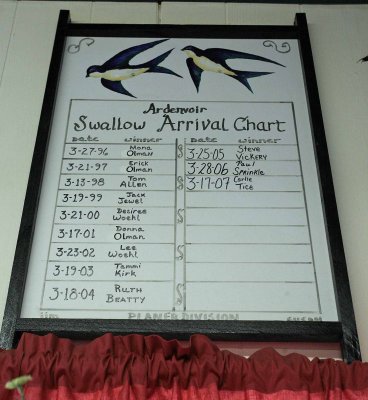 Ardenvoir
Swallow Arrival Chart
DATE WINNER DATE WINNER
3-27-96 Mona Olman
3-21-97 Erick Olman
3-13-98 Tom Allen
3-19-99 Jack Jewel
3-21-00 Desiree Woehl
3-17-01 Donna Olman
3-23-02 Lee Woehl
3-19-03 Tammi Kirk
3-18-04 RUTH BEATTY
3-25-05 Steve VICKERY
3-28-06 Paul SPRINKLE
3-17-07 Tice
PLANER DIVISION